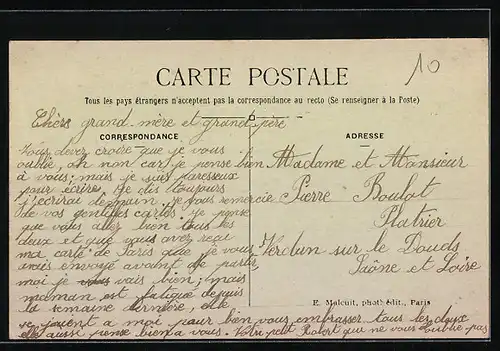 10
CARTE POSTALE
Tous les pays étrangers n'acceptent pas la correspondance au recto (Se renseigner à la Poste)
Chèrs grand-mère et grand-père
CORRESPONDANCE
Vous devez croire que je vous
oublie, oh non car je pense bien
à vous; mais je suis paresseux
pour écrire. Je dis toujours
j'écrirai demain. je vous remercie
de vos gentilles cartes. je pense
que vous allez bien tous les
deux et que vous avez reçu
ma carte de Paris que je vous
avais envoyé avant de partir
moi je vais bien; mais
maman est fatigué depuis
la semaine dernière, elle
se joient a moi pour bien vous embrasser tous les deux
elle aussi pense bien a vous. Votre petit Robert que ne vous oublie pas
ADRESSE
Madame et Monsieur
Pierre Boulot
Platrier
Verdun sur le Douds
Saône et Loire
E. Malcuit, phot. édit., Paris